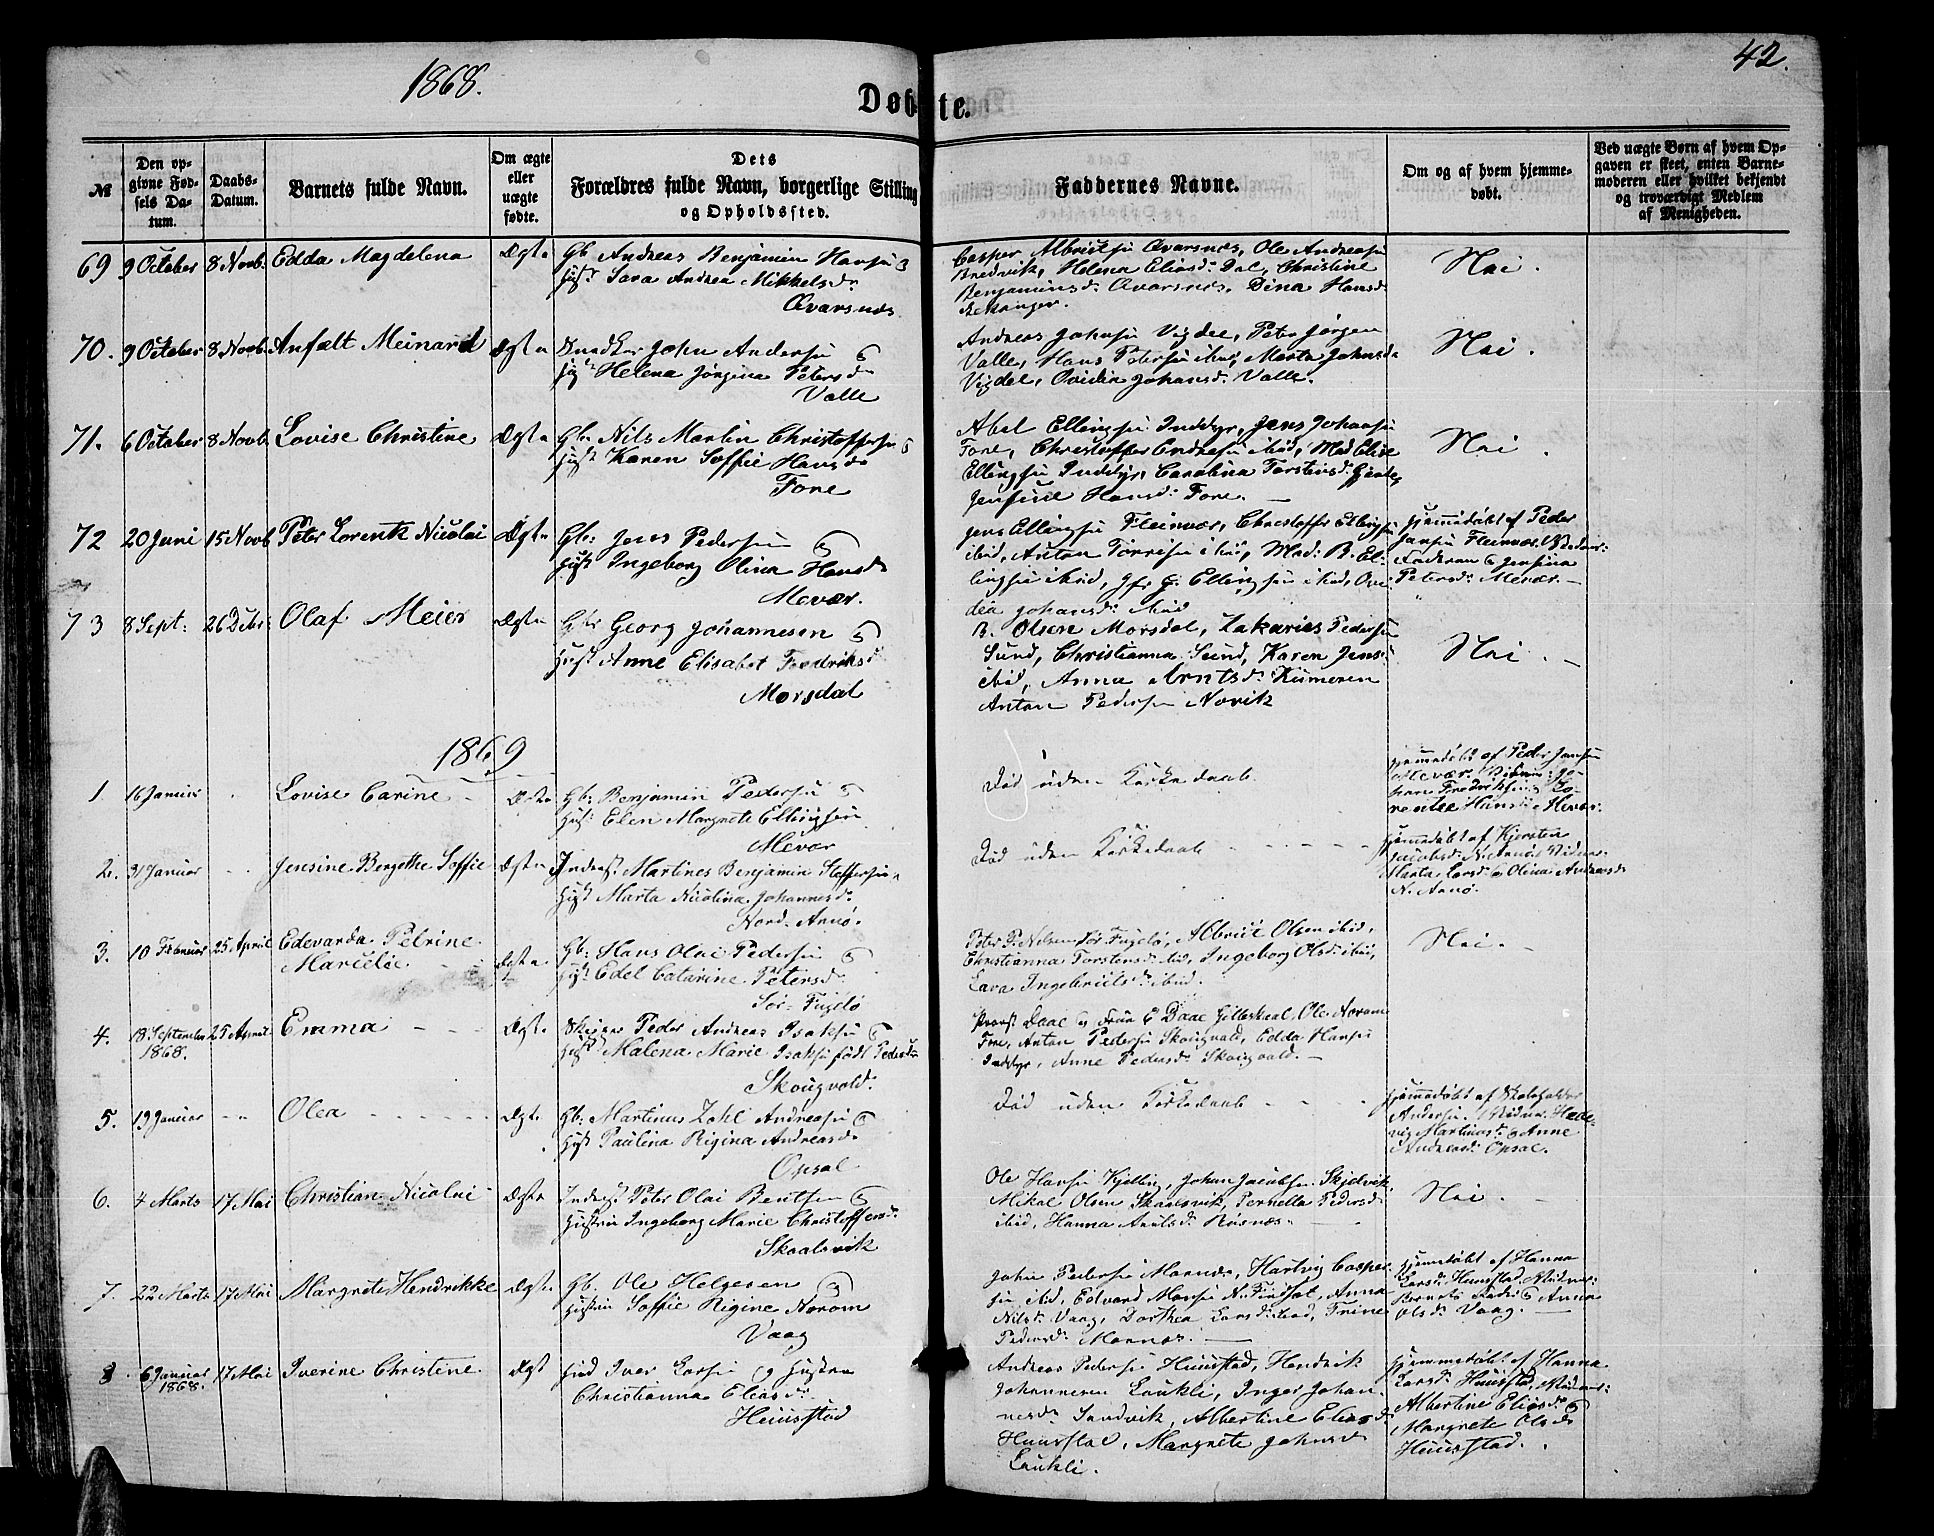 1868.
42.
Døbte.
№
Den opgivne Fødsels Datum.
Daabs-Datum.
Barnets fulde Navn.
Om ægte eller uægte fødte.
Dets Forældres fulde Navn, borgerlige Stilling og Opholdssted.
Faddernes Navne.
Om og af hvem hjemmedøbt.
Ved uægte Børn af hvem Opgaven er skeet, enten Barnemoderen eller hvilket bekjendt og troværdigt Medlem af Menigheden.
69 9 October 8 Novb. Edda Magdelena Ægte
Gb Andreas Benjamin Hansen &
Hust. Sara Andrea Mikkelsd.
Qvarsnes
Casper Albrictsen Qvarsnes, Ole Andreasen
Bredvik, Helena Eliasd. Dal, Christine
Benjaminsd. Qvarsnes, Dina Hansd.
Nei.
70. 9 October 8 Novb. Anfælt Meinard Ægte
Snedker John Andersen &
Helena Jørgina Petersd.
Valle
Andreas Johnsen Vigdel, Peter Jørgen
Valle, Hans Petersen ibid, Marta Johnsd.
Vigdel, Ovidia Johansd. Valle.
Nei.
71. 6 October 8 Novb. Lovise Christine Ægte
Gb. Nils Martin Christoffersen &
Hust Karen Soffie Hansd.
Fore
Abel Ellingsen Inddyr, Jens Johansen
Fore, Christoffer Andresen ibid, Mad Elise
Ellingsen Inddyr, Carolina Torstensd.
Jensine Hansd. Fore.
Nei.
72 20 Juni 15 Novb Peter Lorentz Nicolai Ægte
Gb: Jens Pedersen &
Hust Ingeborg Olina Hansd.
Mevær.
Jens Ellingsen Fleinvær, Christoffer Ellingsen
ibid, Anton Torrisen ibid, Mad: B. El-
lingsen ibid, Jfr J. Ellingsen ibid, Ovi-
dia Johansd. ibid
Hjemmedøbt af Peder
Jansen Fleinvær. Vidner:
Faderen & Jensina
Petersd. Mevær.
73 8 Sept: 26 Debr: Olaf Meier Ægte
Gb Georg Johannesen &
Hust Anne Elisabet Fredriksd.
Morsdal
B. Olsen Morsdal, Zakarias Pedersen
Sund, Christianna Sund, Karen Jensd.
ibid, Anna Arntsd.
Anton Pedersen Norvik
Nei.
1869
1. 16 Januar Lovise Carine Ægte
Gb: Benjamin Pedersen &
Hust. Elen Margrete Ellingsen
Mevær
Død uden Kirkedaab
Hjemmedøbt af Peder Jansen
Mevær. Vidner: Jo-
han Fredriksen & Lo-
rentze Hansd. Mevær.
2. 31 Januar Jensine Bergitte Soffie Ægte
Inderst Martines Benjamin Stoffersen &
Hust Marta Nicolina Johannesd.
Nord-Arnø.
Død uden Kirkedaab
Hjemmedøbt af Kjersten
Jacobsd. N. Arnø Vidner:
Marta Larsd. & Olina Andreasd.
N. Arnø.
3. 10 Februar 25 April Edevarda Petrine
Marcelie Ægte
Gb: Hans Olai Pedersen &
Hust Edel Catarine Petersd.
Sør-Fugelø
Peter P. Nilsen Sør Fugelø, Albrict Olsen ibid,
Christianna Torstensd. ibid, Ingeborg Olsd. ibid,
Lava Ingebriktsd. ibid.
Nei.
4. 18 September 25 April Emma Ægte
1868.
Peder Andreas Isaksen &
Hust Malena Marie Isaksen født Pedersd.
Skougvold.
Provst Daae & Frue E Daae Gilleskaal, Ole Norum
Fore, Anton Pedersen Skougvold, Edda Hansen
Inddyr, Anne Pedersd. Skougvold.
5. 19 Januar Olea Ægte
Gb: Martinus Zahl Andreasen &
Hust Paulina Rigina Andreasd.
Opsal
Død uden Kirkedaab
Hjemmedøbt af Skoleholder
Andersen. Vidner: Hede-
vig Martinusd. & Anne
Andreasd. Opsal.
6. 4 Marts 17 Mai Christian Nicolai Ægte
Inderst Peter Olai Bentsen &
Hustru Ingeborg Marie Christoffersd.
Skaalsvik
Ole Hansen Kjelling, Johan Jacobsen Skjelvik,
Mikal Olsen Skaalsvik, Pernella Pedersd.
ibid, Hanna Arntsd. Røsnæs
Nei.
7. 22 Marts 17 Mai Margrete Hendrikke Ægte
Gb. Ole Helgesen &
Hustru Soffie Rigine Norom
Vaag
John Pedersen Mornæs, Hartvig Casper-
sen ibid, Edvard Hansen N. Findset, Anna
Nilsd. Vaag, Dorthea Larsd. ibid, Trine
Pedersd. Mornæs.
Hjemmedøbt af Hanna
Larsd. Huusstad, Vidner:
Barnets Fader & Anna
Olsd. Vaag.
8 6 Januar 17 Mai Iverine Christine Ægte
1868.
Iver Larsen & Hustru
Christianna Eliasd.
Huusstad
Andreas Pedersen Huusstad, Hendrik
Johannesen Laukli, Inger Johan-
nesd. Sandvik, Albertine Eliasd.
Huusstad, Margrete Johnsd.
Laukli.
Hjemmedøbt af Hanna
Larsd. Huusstad, Vidner:
Albertine Eliasd. &
Margrete Olsd.
Huusstad.